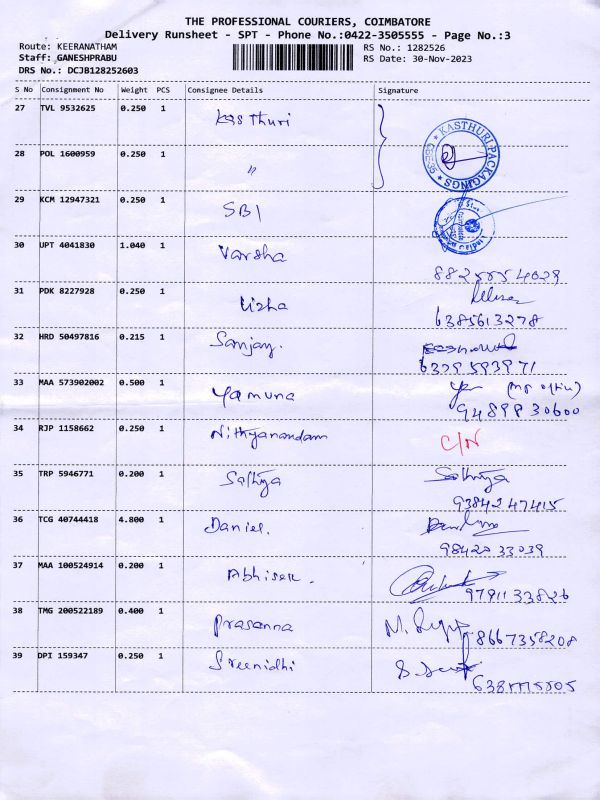 THE PROFESSIONAL COURIERS, COIMBATORE
Delivery Runsheet - SPT - Phone No.:0422-3505555 - Page No.:3
Route: KEERANATHAM RS No.: 1282526
Staff: GANESHPRABU RS Date: 30-Nov-2023
DRS No.: DCJB128252603
S No Consignment No Weight PCS Consignee Details Signature
27 TVL 9532625 0.250 1 Kasthuri
KASTHURI PACKAGINGS
28 POL 1600959 0.250 1 "
29 KCM 12947321 0.250 1 SBI
30 UPT 4041830 1.040 1 Varsha
31 PDK 8227928 0.250 1 Usha
6385613278
32 HRD 50497816 0.215 1 Sanjay.
33 MAA 573902002 0.500 1 Yamuna
9489830600
34 RJP 1158662 0.250 1 Nithyanandam C/N
35 TRP 5946771 0.200 1 Sathya Sathya
9384247415
36 TCG 40744418 4.800 1 Daniel.
9842033039
37 MAA 100524914 0.200 1 Abhisek.
9791133826
38 TMG 200522189 0.400 1 Prasanna
8667358208
39 DPI 159347 0.250 1 Sreenidhi